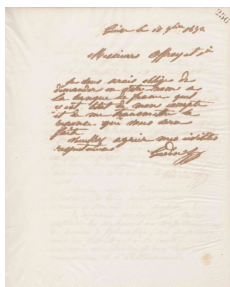 256
le 18 9bre 1872
Messieurs
Je vous serais obligé de
demander en votre nom à
la banque de france quel
est l'état de mon compte
et de me transmettre la
réponse qui vous sera
faite
Veuillez agréer mes civilités